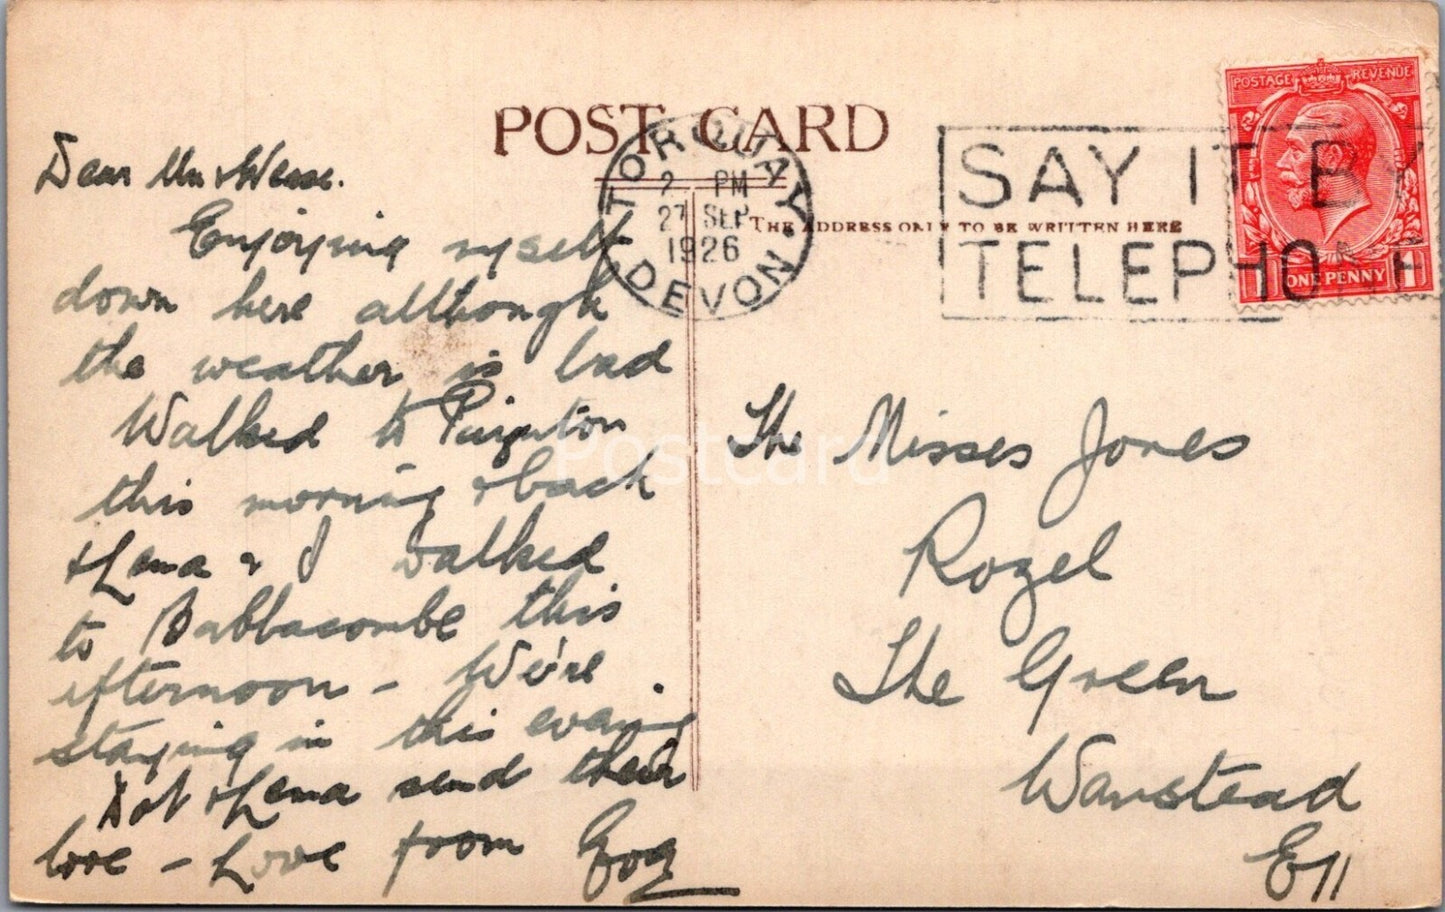 POST CARD
TORQUAY
2 PM
27 SEP
1926
DEVON
SAY IT BY
TELEPHONE
POSTAGE REVENUE
1 ONE PENNY 1
THE ADDRESS ONLY TO BE WRITTEN HERE
Dear
Enjoying myself
down here although
the weather is bad
Walked to Paignton
this morning & back
& Lena & I walked
to Babbacombe this
afternoon - We're
staying in this evening.
Dot & Lena send their
love - Love from
The Misses Jones
Rozel
The Green
Wanstead
E11
Postcard